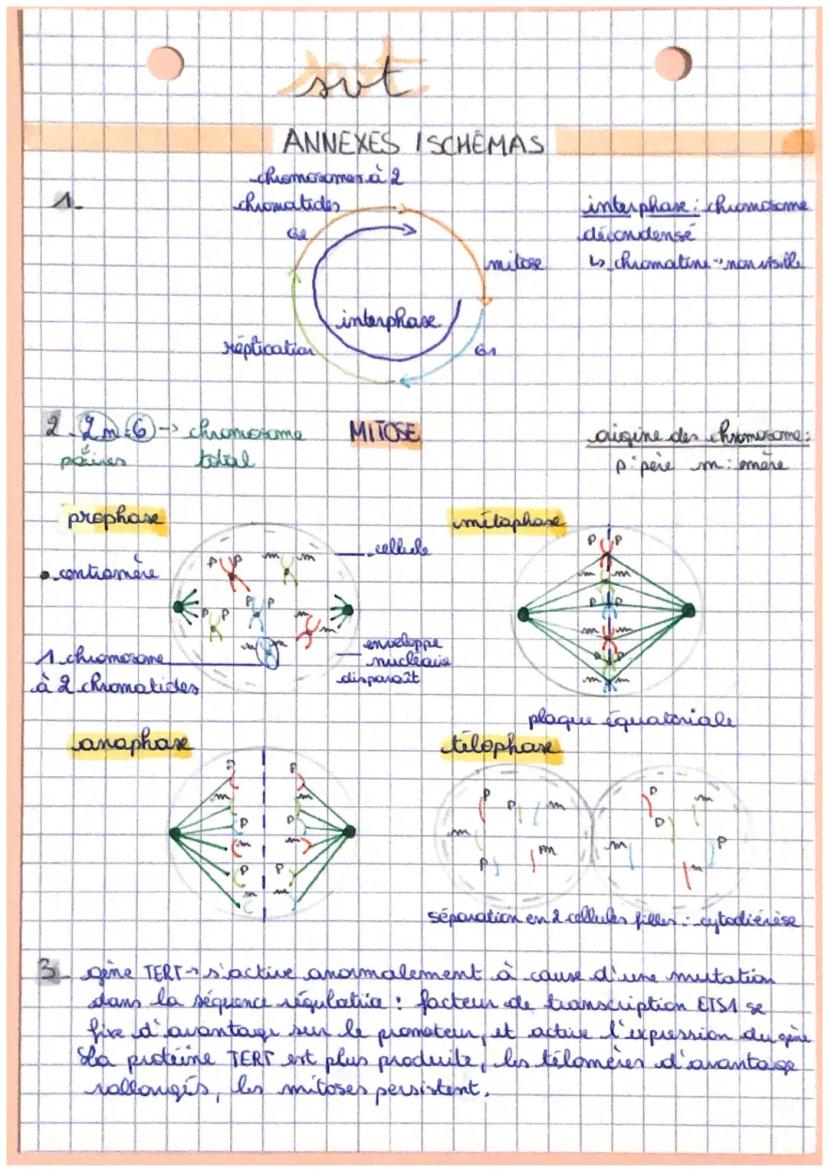 svt
ANNEXES / SCHÉMAS
1.
chromosomes à 2
chromatides
G2
mitose
interphase
réplication
G1
interphase : chromosome
décondensé
↳ chromatine → non visible
2. 2n=6 → chromosome
paires total
MITOSE
origine des chromosome :
p : père m : mère
prophase
centromère
p p m m
p p p p m m
m m
cellule
1 chromosome
à 2 chromatides
enveloppe
nucléaire
disparaît
métaphase
p p
m m
p p
m m
p p
m m
plaque équatoriale
anaphase
p p
m m
p p
m m
p p
m m
télophase
p p m
m
p m
p m
p
m p
m
séparation en 2 cellules filles : cytodiérèse
3. gène TERT → s'active anormalement à cause d'une mutation
dans la séquence régulatrice : facteur de transcription ETS1 se
fixe d'avantage sur le promoteur, et active l'expression du gène
La protéine TERT est plus produite, les télomères d'avantage
rallongés, les mitoses persistent.